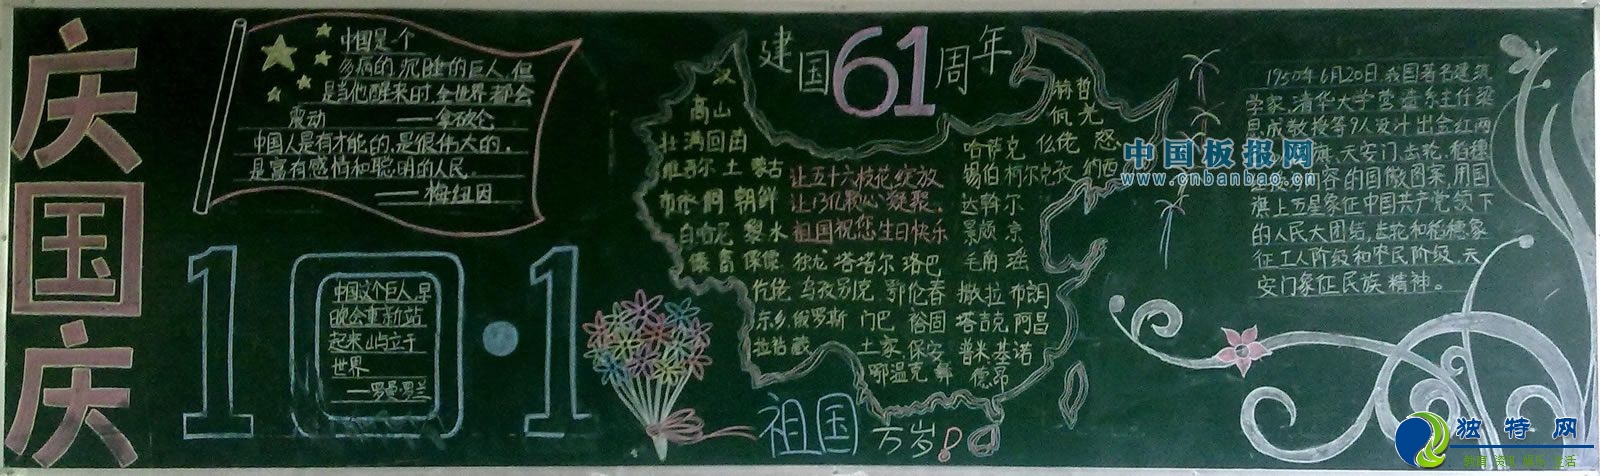 庆国庆
中国是一个
多病的沉睡的巨人,但
是当他醒来时,全世界都会
震动 ——拿破仑
中国人是有才能的,是很伟大的。
是富有感情和聪明的人民。
——梅纽因
10·1
中国这个巨人,早
晚会重新站
起来屿立于
世界
——罗曼·罗兰
建国61周年
汉
高山
壮 满 回 苗
维吾尔 土 蒙古
布依 侗 朝鲜
白 哈尼 黎 水
傣 畲 傈僳 独龙 塔塔尔 珞巴
仡佬 乌孜别克 鄂伦春 撒拉 布朗
东乡 俄罗斯 门巴 裕固 塔吉克 阿昌
拉祜 藏 土家 保安 普米 基诺
鄂温克 彝 德昂
赫哲
佤 羌
仫佬 怒
哈萨克
锡伯 柯尔克孜 纳西
达斡尔
景颇 京
毛南 瑶
让五十六枝花绽放
让13亿颗心凝聚。
祖国祝您生日快乐
祖国万岁!
1950年6月20日,我国著名建筑
学家、清华大学营造系主任梁
思成教授等9人设计出金红两
旗、天安门、齿轮、稻穗
内容的国徽图案,用国
旗上五星象征中国共产党领下
的人民大团结,齿轮和稻穗象
征工人阶级和农民阶级,天
安门象征民族精神。
中国板报网
www.cnbanbao.cn
独特网